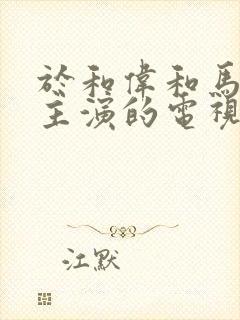 於和偉和馬
主演的電視
江默